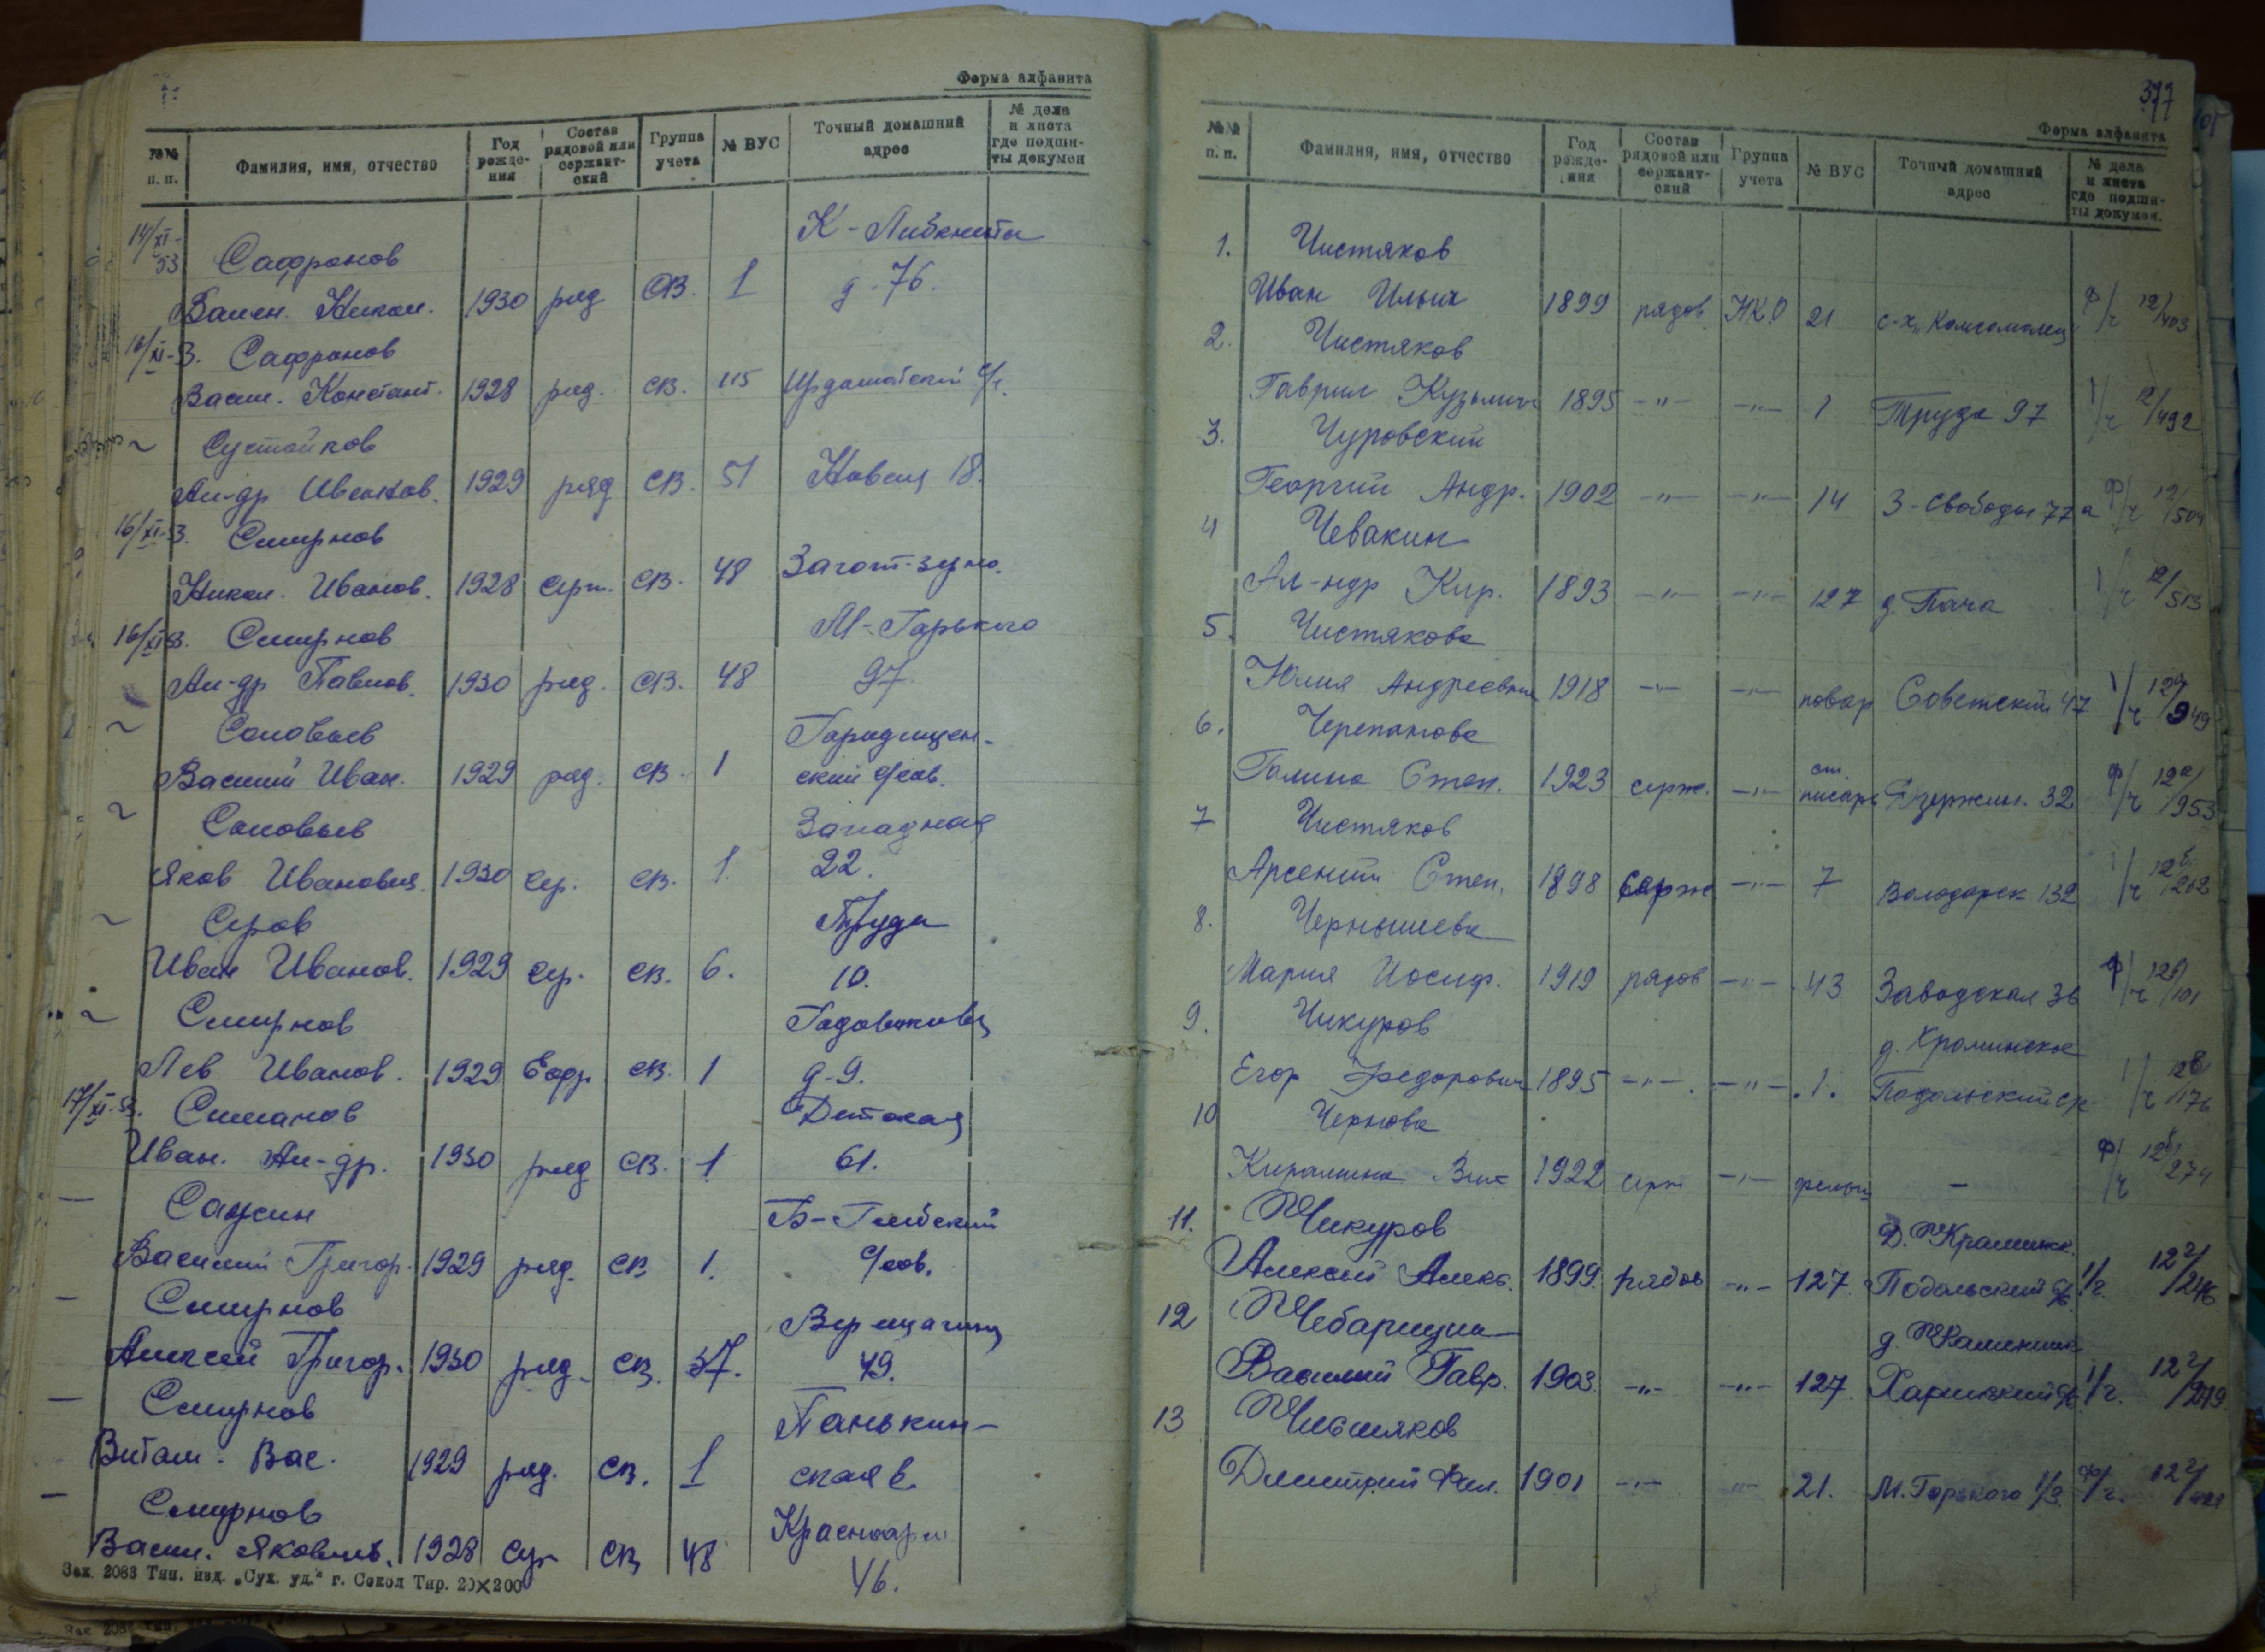 Форма алфавита
№№ п. п. Фамилия, имя, отчество Год рождения Состав рядовой или сержантский Группа учета № ВУС Точный домашний адрес № дела и листа где подшиты докумен
14/XI-53 Сафронов К-Либкнехта
Васил. Никол. 1930 ряд СВ. 1 д-76.
16/XI-53. Сафронов
Васил. Констант. 1928 ряд. СВ. 115
~
Ал-др 1929 ряд СВ. 51 18.
16/XI-53. Смирнов
Никол. Иванов. 1928 серж. СВ. 48 Загот-зерно.
16/XI-53. Смирнов М-Горького
Ал-др Павлов. 1930 ряд. СВ. 48 97
~ Соловьев Городищен-
Василий Иван. 1929 ряд. СВ. 1 ский с/сов.
~ Соловьев Западная
Яков Иванович. 1930 СВ. 1. 22.
~ Серов Труда
Иван Иванов. 1929 СВ. 6. 10.
~ Смирнов
Лев Иванов. 1929 Ефр СВ. 1 д-9.
17/XI-53. Симанов Детская
Иван. Ал-др. 1930 ряд СВ. 1 61.
— Сажин
Василий Григор. 1929 ряд. СВ 1. с/сов.
— Смирнов Верещагина
Алексей Григор. 1930 ряд. СВ. 37. 49.
— Смирнов Панькин-
Витал. Вас. 1929 ряд. СВ. 1 ская
— Смирнов Красноарм
Васил. Яковлев. 1928 СВ 48 46.
Зак. 2083 Тип. изд. „Сух. уд.“ г. Сокол Тир. 20×200
377
Форма алфавита
№№ п. п. Фамилия, имя, отчество Год рождения Состав рядовой или сержантский Группа учета № ВУС Точный домашний адрес № дела и листа где подшиты докумен.
1. Чистяков
Иван Ильич 1899 рядов НКО 21 с-х „Комсомолец" ф/г 12/403
2. Чистяков
Гаврил Кузьмич 1895 —"— —"— 1 Труда 97 1/г 12/492
3. Чуровский
Георгий Андр. 1902 —"— —"— 14 3-Свободы 77а ф/г 12/504
4 Чевакин
Ал-ндр Кир. 1893 —"— —"— 127 1/г 12/513
5. Чистякова
Юлия Андреевна 1918 —"— —"— повар Советский 47 1/г 12а/949
6. Черепанова
Галина Степ. 1923 серж. —"— ст. писарь Дзержин. 32 ф/г 12а/953
7 Чистяков
Арсений Степ. 1898 Серж —"— 7 Володарск 132 1/г 12б/262
8. Чернышева
Мария Иосиф. 1919 рядов —"— 43 Заводская 36 ф/г 12б/101
9. Чикуров
Егор Федорович 1895 —"— —"— 1. Подольский 1/г
10 Чернова
1922 серж —"— фельд — ф/г
11. Чикуров
Алексей Алекс. 1899. рядов —"— 127 Подольский 1/г. 12г/246
12
Василий Гавр. 1903. —"— —"— 127. 1/г. 12г/
13
Дмитрий Фил. 1901 —"— —"— 21. М. Горького ф/г. 12г/